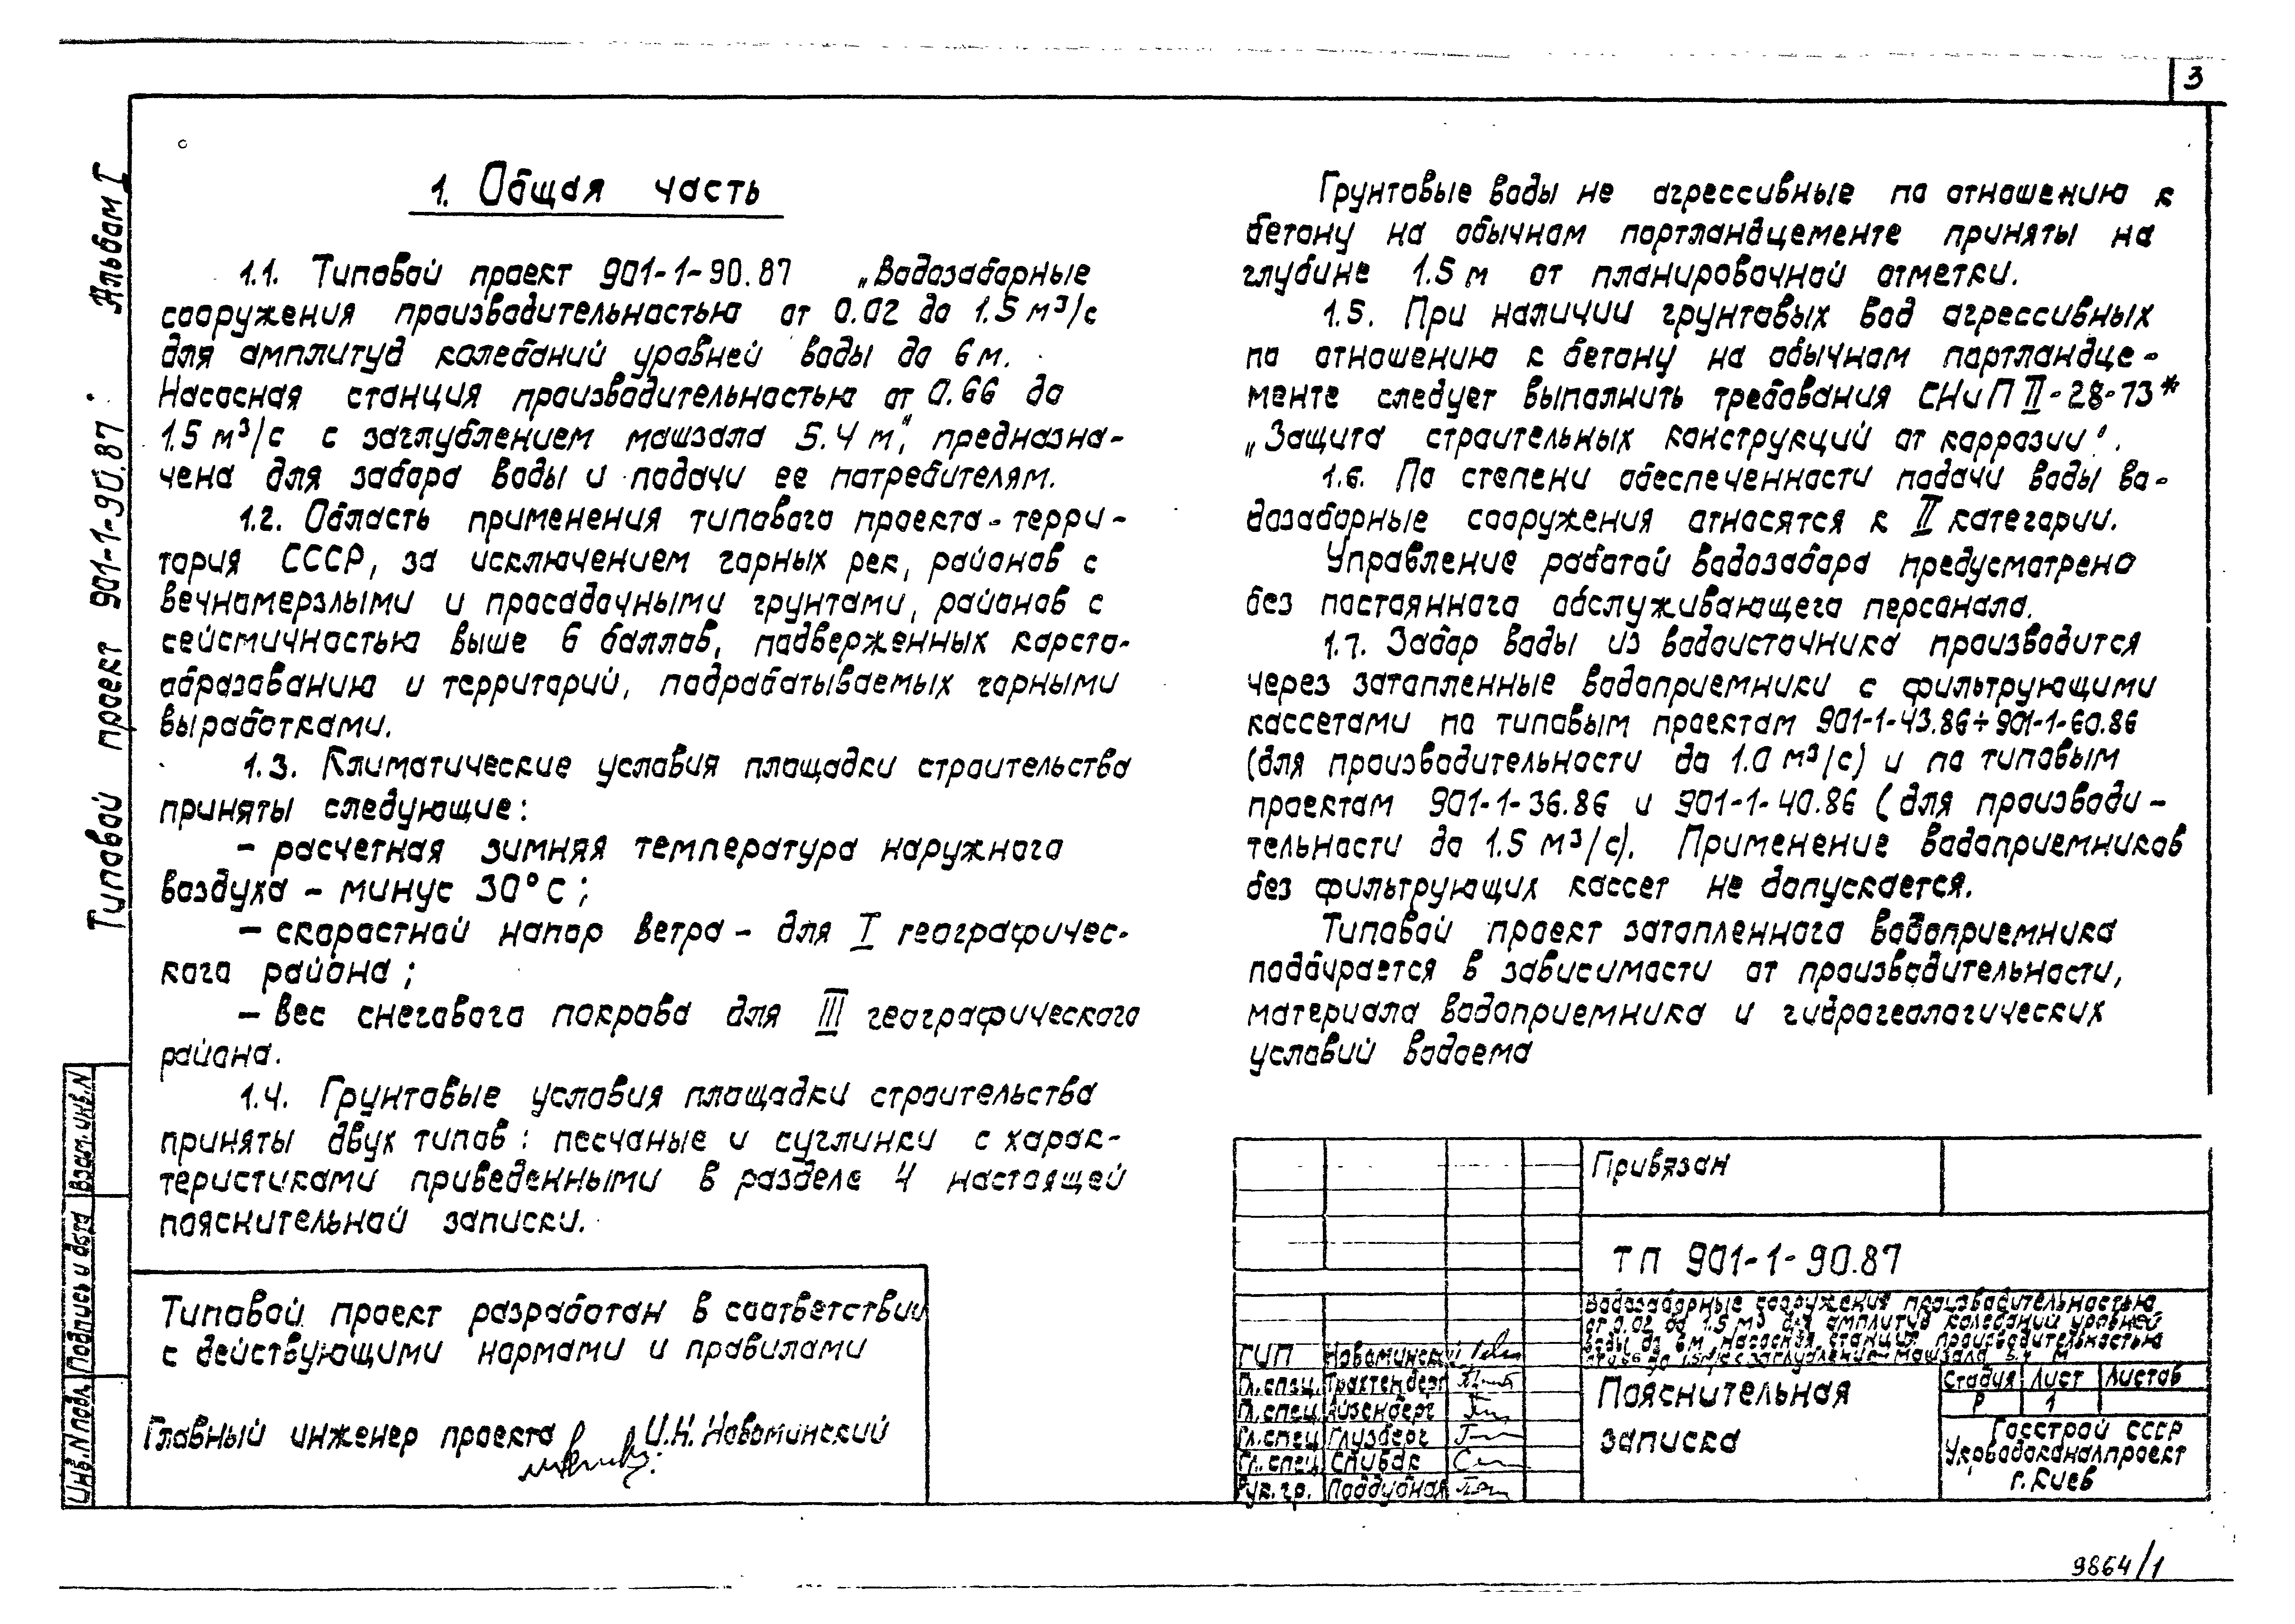 3
Типовой проект 901-1-90.87 Альбом I
1. Общая часть
1.1. Типовой проект 901-1-90.87 „Водозаборные
сооружения производительностью от 0.02 до 1.5 м³/с
для амплитуд колебаний уровней воды до 6 м.
Насосная станция производительностью от 0.66 до
1.5 м³/с с заглублением машзала 5.4 м", предназна-
чена для забора воды и подачи ее потребителям.
1.2. Область применения типового проекта - терри-
тория СССР, за исключением горных рек, районов с
вечномерзлыми и просадочными грунтами, районов с
сейсмичностью выше 6 баллов, подверженных карсто-
образованию и территорий, подрабатываемых горными
выработками.
1.3. Климатические условия площадки строительства
приняты следующие:
– расчетная зимняя температура наружного
воздуха – минус 30°С;
– скоростной напор ветра – для I географичес-
кого района;
– вес снегового покрова для III географического
района.
1.4. Грунтовые условия площадки строительства
приняты двух типов: песчаные и суглинки с харак-
теристиками приведенными в разделе 4 настоящей
пояснительной записки.
Типовой проект разработан в соответствии
с действующими нормами и правилами
Главный инженер проекта И.Н. Новоминский
Грунтовые воды не агрессивные по отношению к
бетону на обычном портландцементе приняты на
глубине 1.5 м от планировочной отметки.
1.5. При наличии грунтовых вод агрессивных
по отношению к бетону на обычном портландце-
менте следует выполнить требования СНиП II-28-73*
„Защита строительных конструкций от коррозии".
1.6. По степени обеспеченности подачи воды во-
дозаборные сооружения относятся к II категории.
Управление работой водозабора предусмотрено
без постоянного обслуживающего персонала.
1.7. Забор воды из водоисточника производится
через затопленные водоприемники с фильтрующими
кассетами по типовым проектам 901-1-43.86÷901-1-60.86
(для производительности до 1.0 м³/с) и по типовым
проектам 901-1-36.86 и 901-1-40.86 (для производи-
тельности до 1.5 м³/с). Применение водоприемников
без фильтрующих кассет не допускается.
Типовой проект затопленного водоприемника
подбирается в зависимости от производительности,
материала водоприемника и гидрогеологических
условий водоема
Привязан
ТП 901-1-90.87
Водозаборные сооружения производительностью
от 0.02 до 1.5 м³ для амплитуд колебаний уровней
воды до 6м. Насосная станция производительностью
от 0.66 до 1.5 м³/с с заглублением машзала 5.4 м
ГИП Новоминский
Гл.спец. Трахтенберг
Гл.спец. Айзенберг
Гл.спец Глузберг
Гл.спец Спивак
Рук.гр. Поддубная
Пояснительная
записка
Стадия Лист Листов
Р 1
Госстрой СССР
Укрводоканалпроект
г. Киев
Инв.N подл. Подпись и дата Взам.инв.N
9864/1